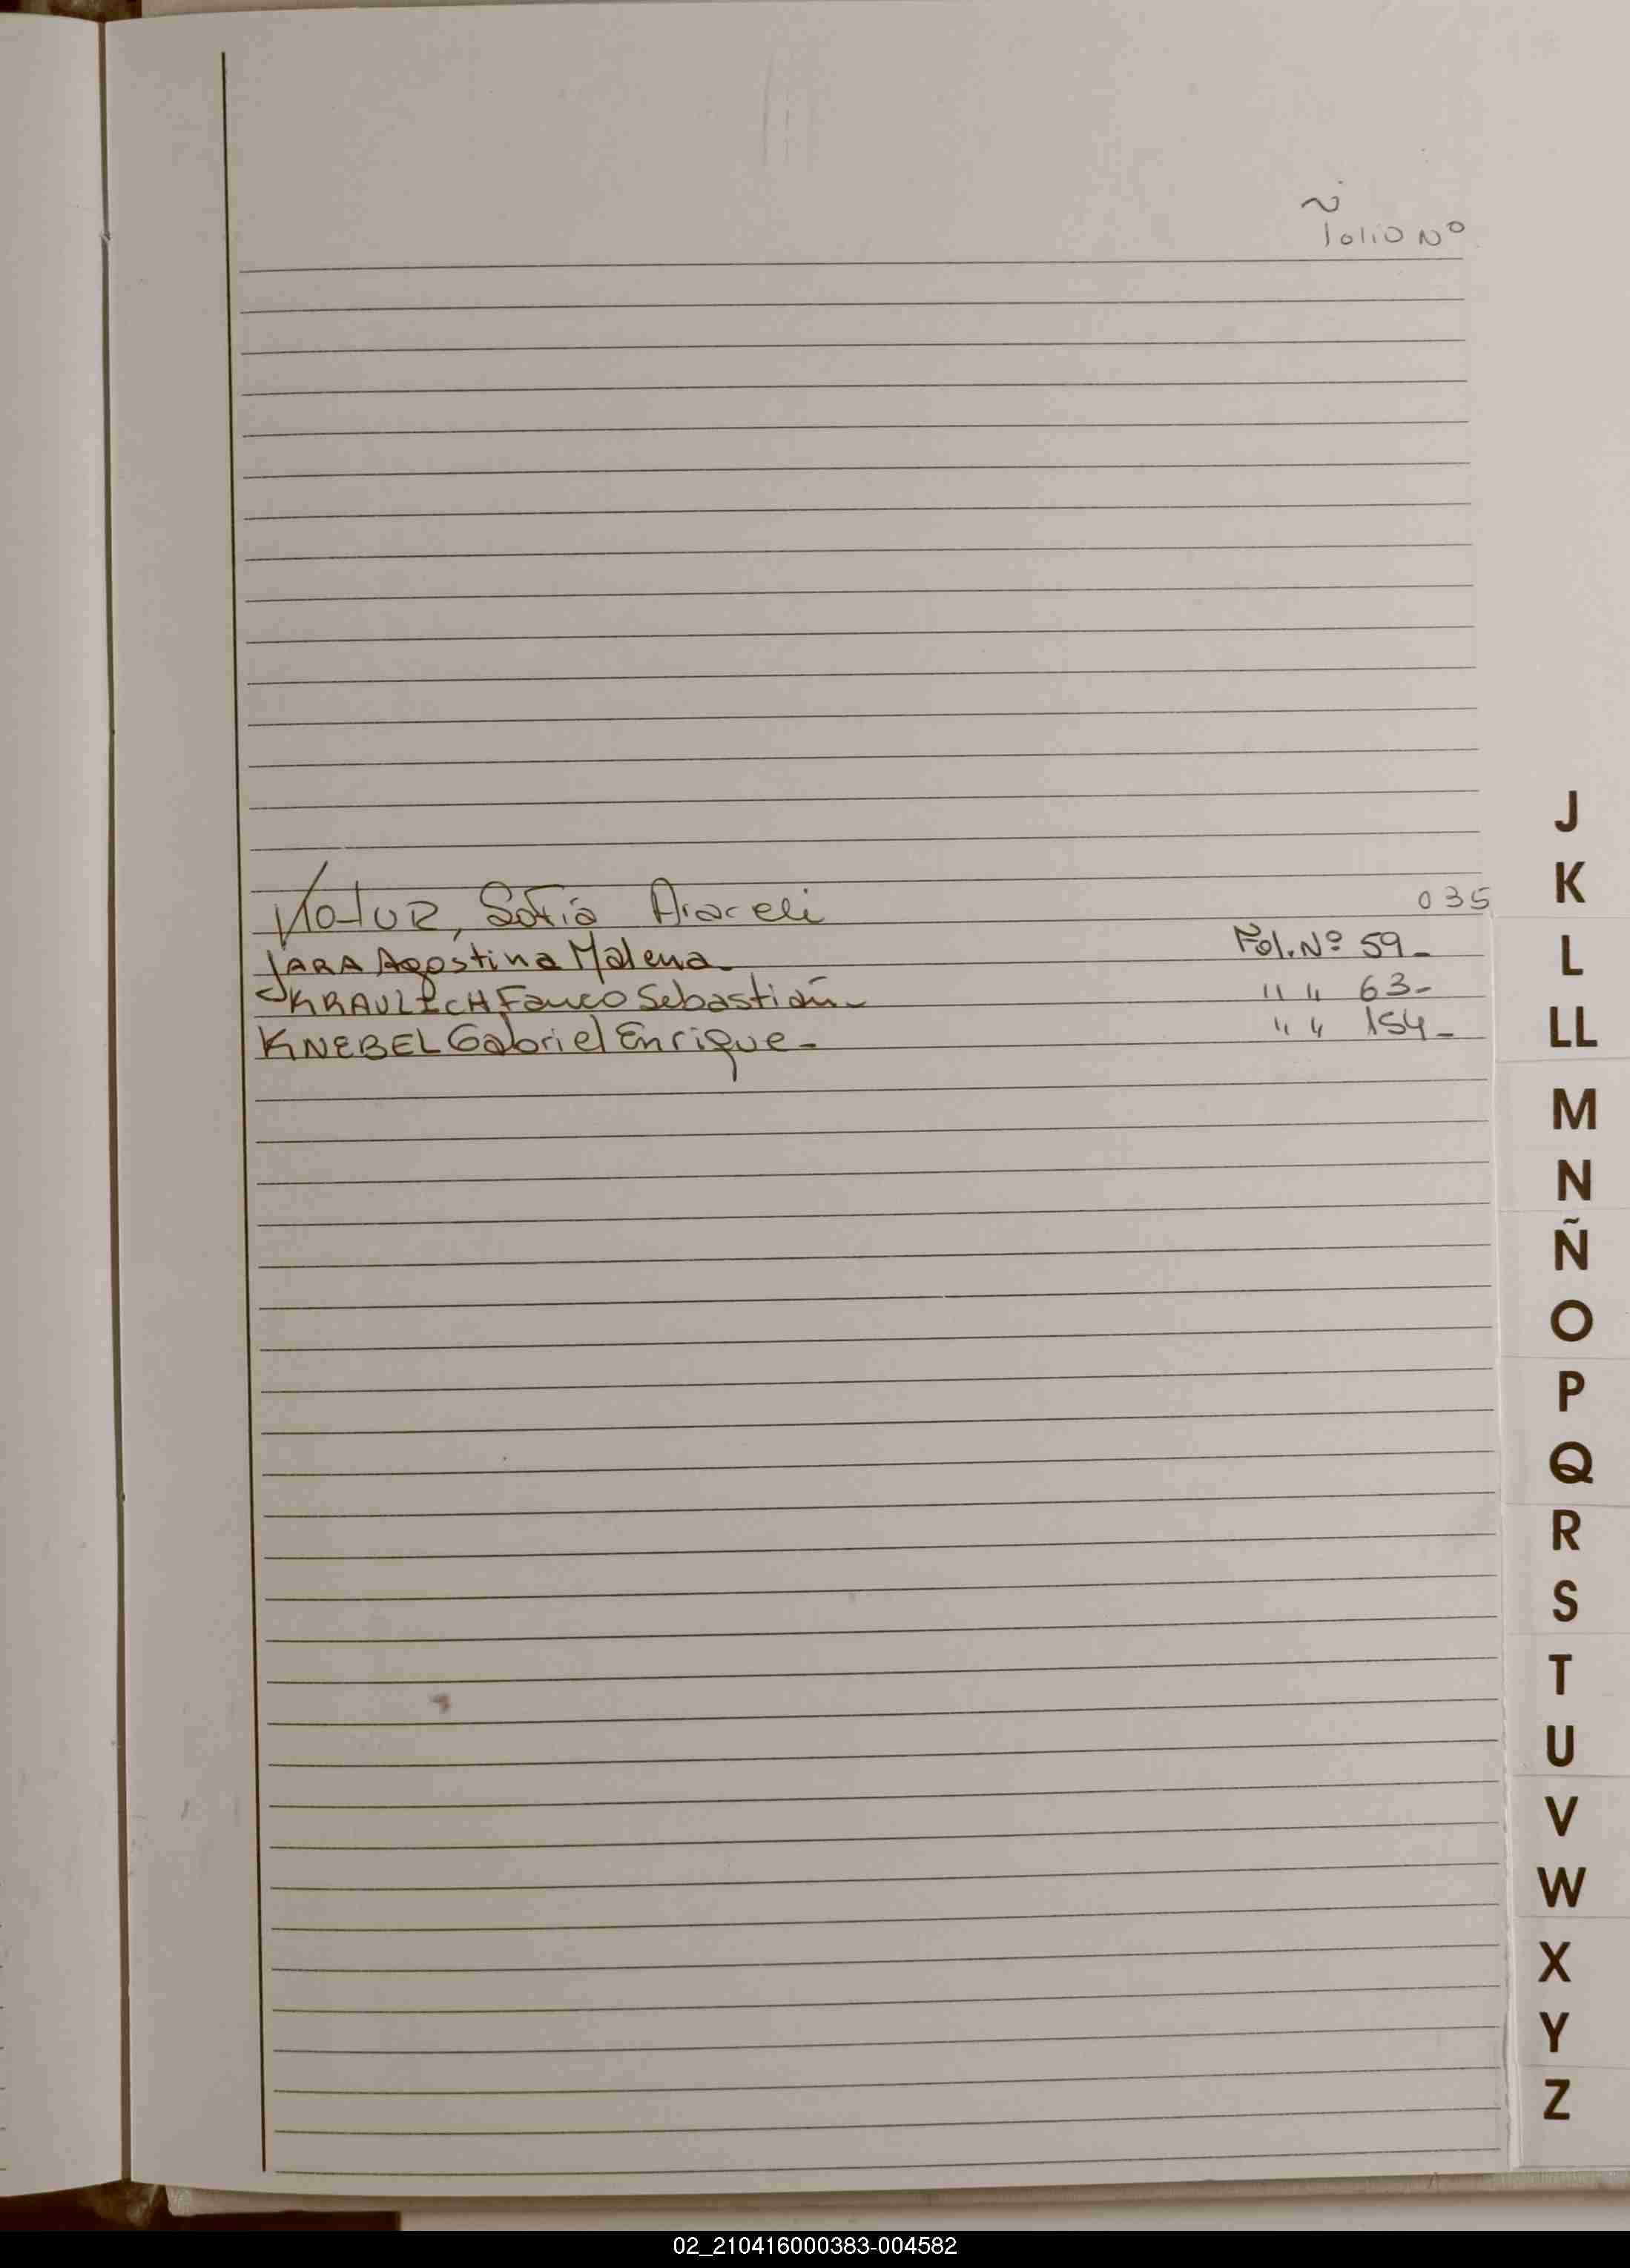 Folio Nº
Sofia Araceli 035
JARA Agostina Malena - Fol. Nº 59 -
KRAULICH Franco Sebastián - " " 63 -
KNEBEL Gabriel Enrique - " " 154 -
J
K
L
LL
M
N
Ñ
O
P
Q
R
S
T
U
V
W
X
Y
Z
02_210416000383-004582